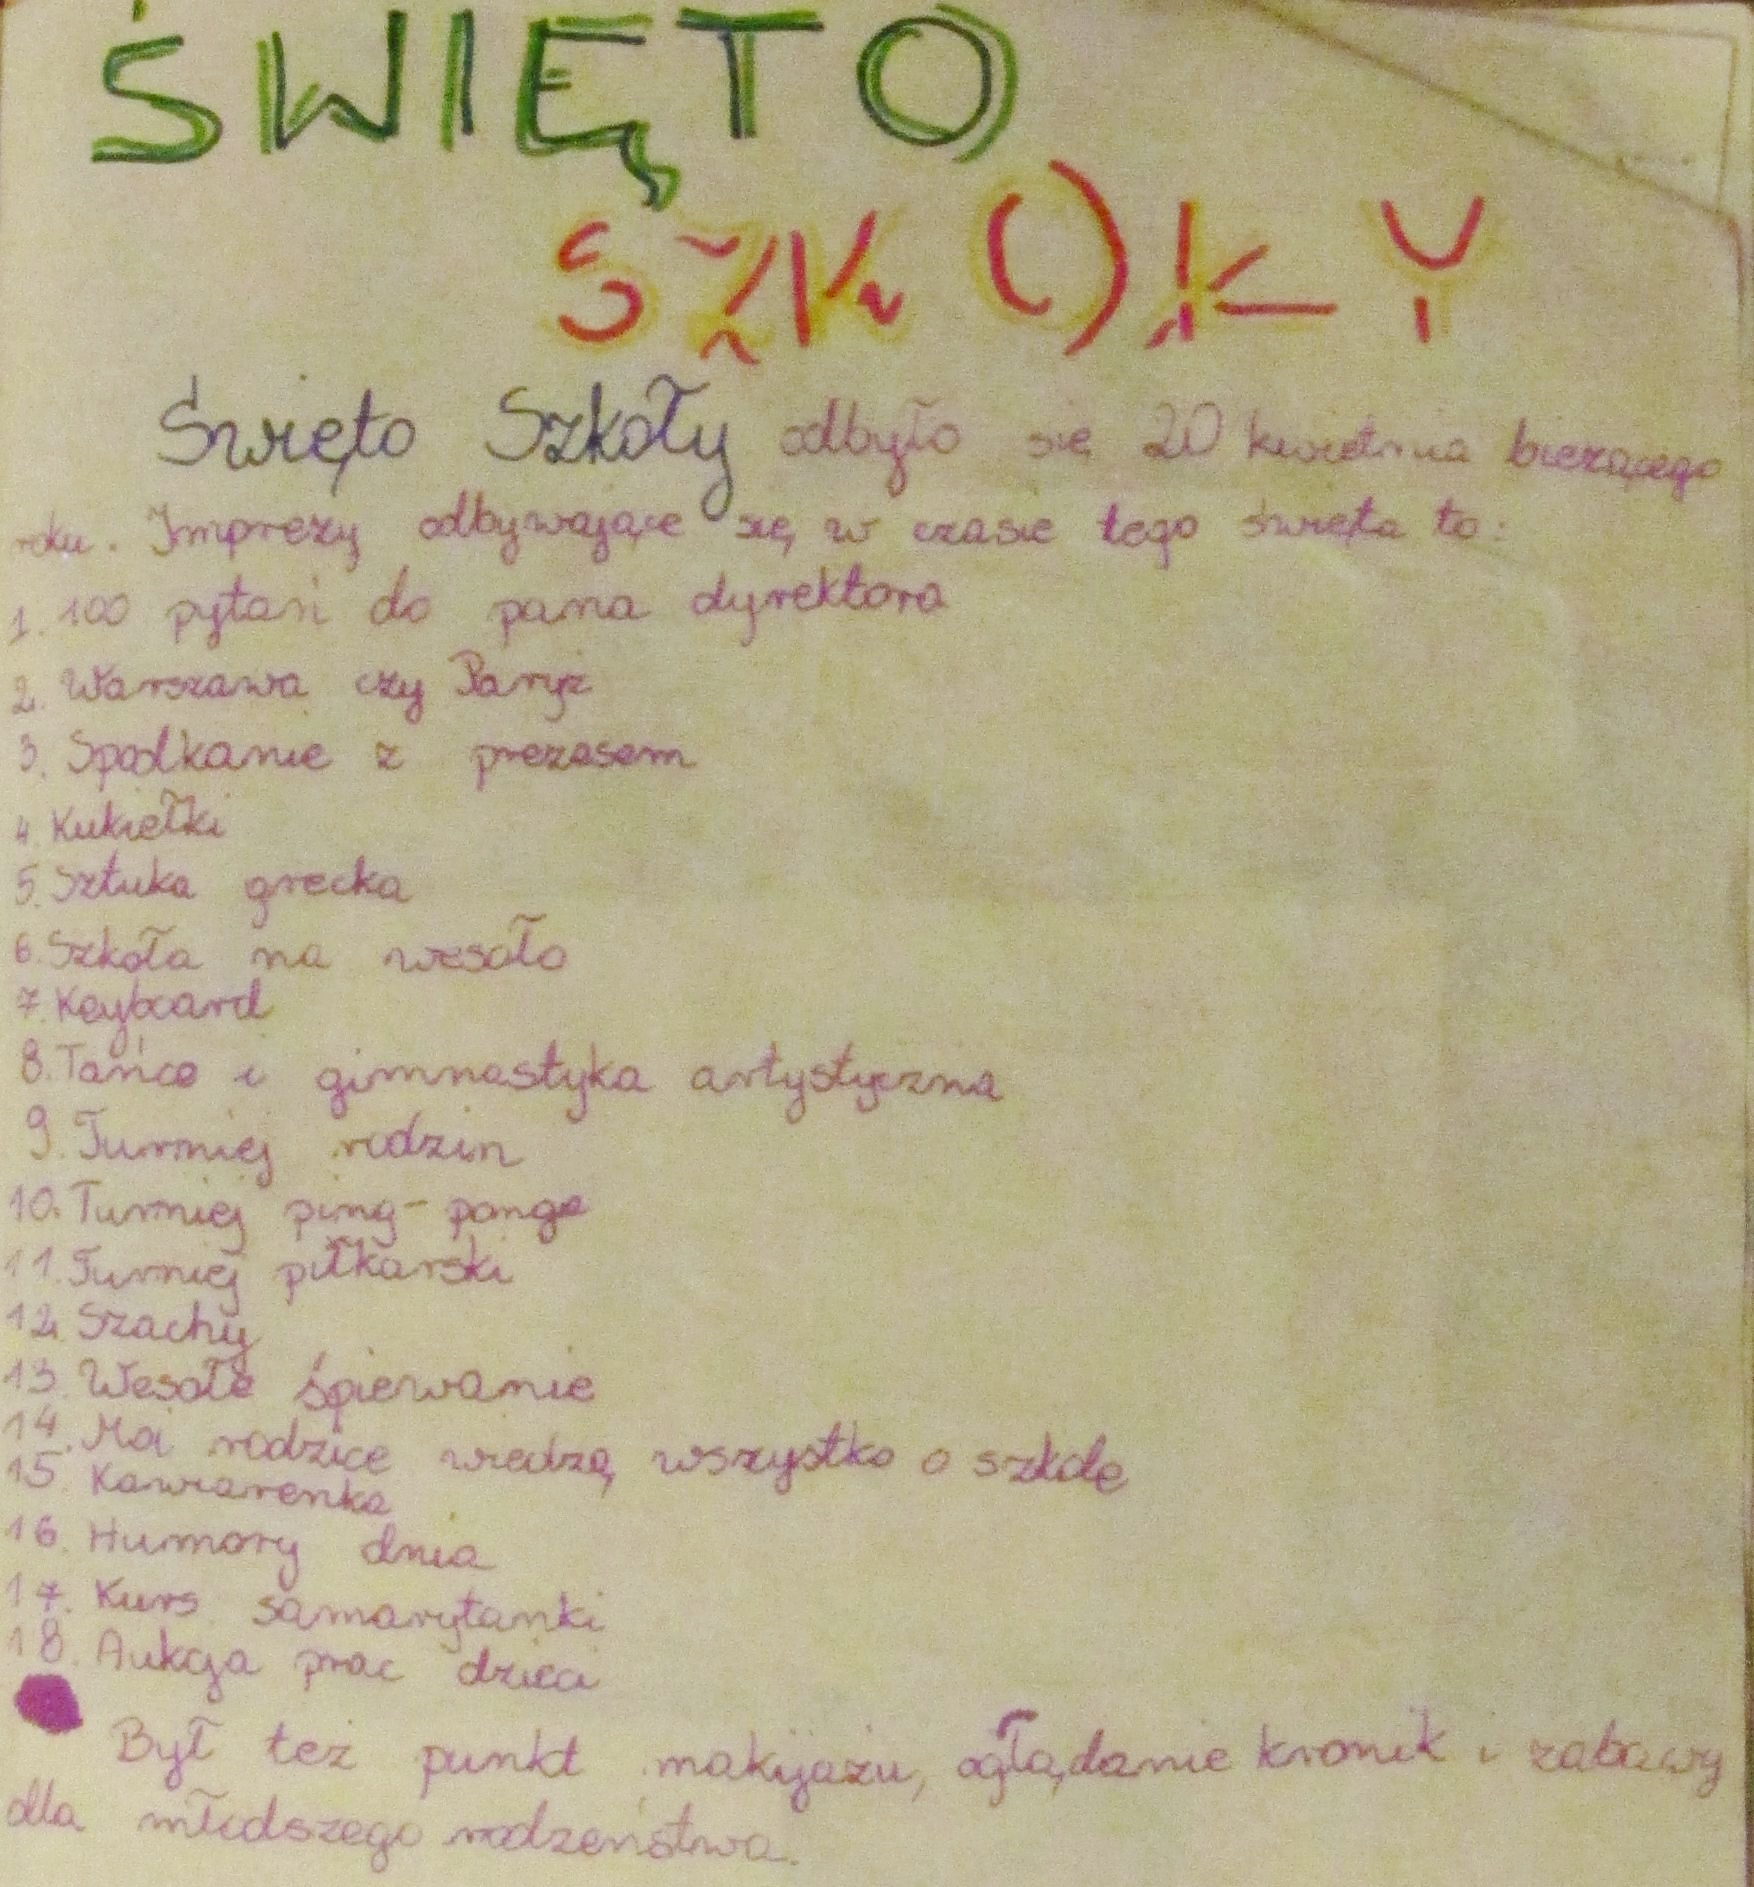 ŚWIĘTO
SZKOŁY
Święto Szkoły odbyło się 20 kwietnia bieżącego
roku. Imprezy odbywające się w czasie tego święta to:
1. 100 pytań do pana dyrektora
2. Warszawa czy Paryż
3. Spotkanie z prezesem
4. Kukiełki
5. Sztuka grecka
6. Szkoła na wesoło
7. Keyboard
8. Tańce i gimnastyka artystyczna
9. Turniej rodzin
10. Turniej ping-ponga
11. Turniej piłkarski
12. Szachy
13. Wesołe śpiewanie
14. Moi rodzice wiedzą wszystko o szkole
15. Kawiarenka
16. Humory dnia
17. Kurs samarytanki
18. Aukcja prac dzieci
Był też punkt makijażu, oglądanie kronik i zabawy
dla młodszego rodzeństwa.